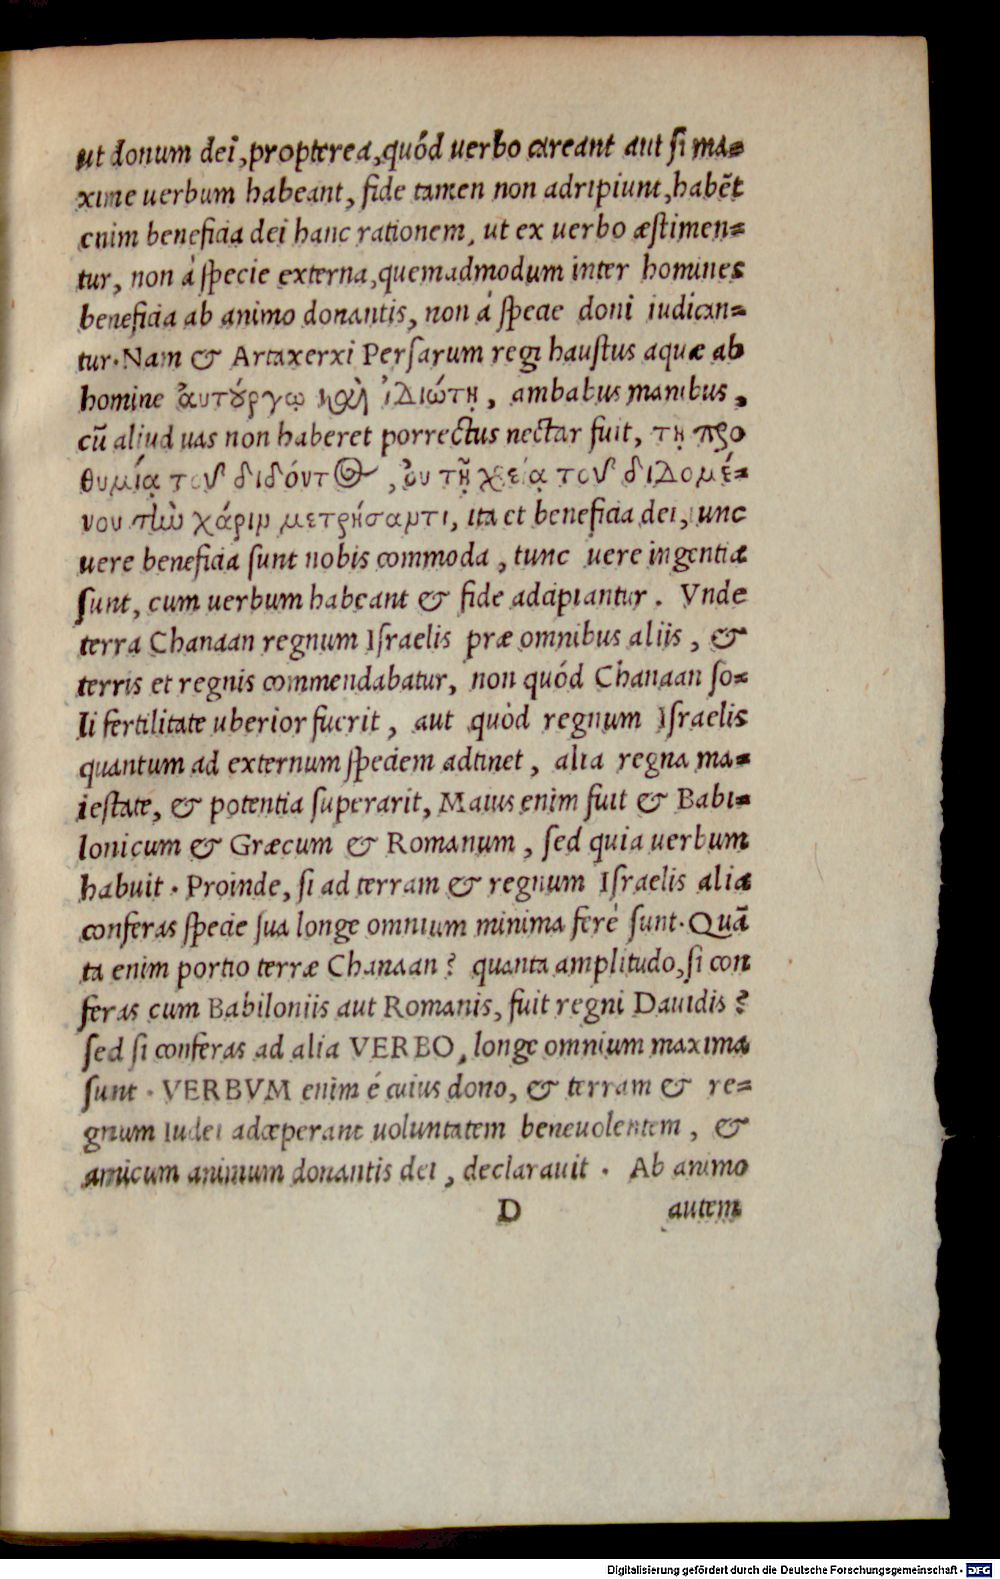 ut donum dei, propterea, quód uerbo careant aut ſi ma=
xime uerbum habeant, fide tamen non adripiunt, habēt
enim beneficia dei hanc rationem, ut ex uerbo æſtimen=
tur, non á ſpecie externa, quemadmodum inter homines
beneficia ab animo donantis, non á ſpecie doni iudican=
tur. Nam & Artaxerxi Perſarum regi hauſtus aquæ ab
homine ἀυτούργῳ καὶ ἰδιώτῃ, ambabus manibus,
cū aliud uas non haberet porrectus nectar fuit, τῃ προ
θυμίᾳ του διδόντος, ὀυ τῇ χρείᾳ του διδομέ=
νου τὼ χάριν μετρήσαντι, ita et beneficia dei, tunc
uere beneficia ſunt nobis commoda, tunc uere ingentia
ſunt, cum uerbum habeant & fide adcipiantur. Vnde
terra Chanaan regnum Iſraelis præ omnibus aliis, &
terris et regnis commendabatur, non quód Chanaan ſo=
li fertilitate uberior fuerit, aut quòd regnum Iſraelis
quantum ad externum ſpeciem adtinet, alia regna ma=
ieſtate, & potentia ſuperarit, Maius enim fuit & Babi=
lonicum & Græcum & Romanum, ſed quia uerbum
habuit. Proinde, ſi ad terram & regnum Iſraelis alia
conferas ſpecie ſua longe omnium minima ferè ſunt. Quā
ta enim portio terræ Chanaan? quanta amplitudo, ſi con
feras cum Babiloniis aut Romanis, fuit regni Dauidis?
ſed ſi conferas ad alia VERBO, longe omnium maxima
ſunt. VERBVM enim é cuius dono, & terram & re=
gnum Iudei adcæperant uoluntatem beneuolentem, &
amicum animum donantis dei, declarauit. Ab animo
D autem
Digitalisierung gefördert durch die Deutsche Forschungsgemeinschaft - DFG